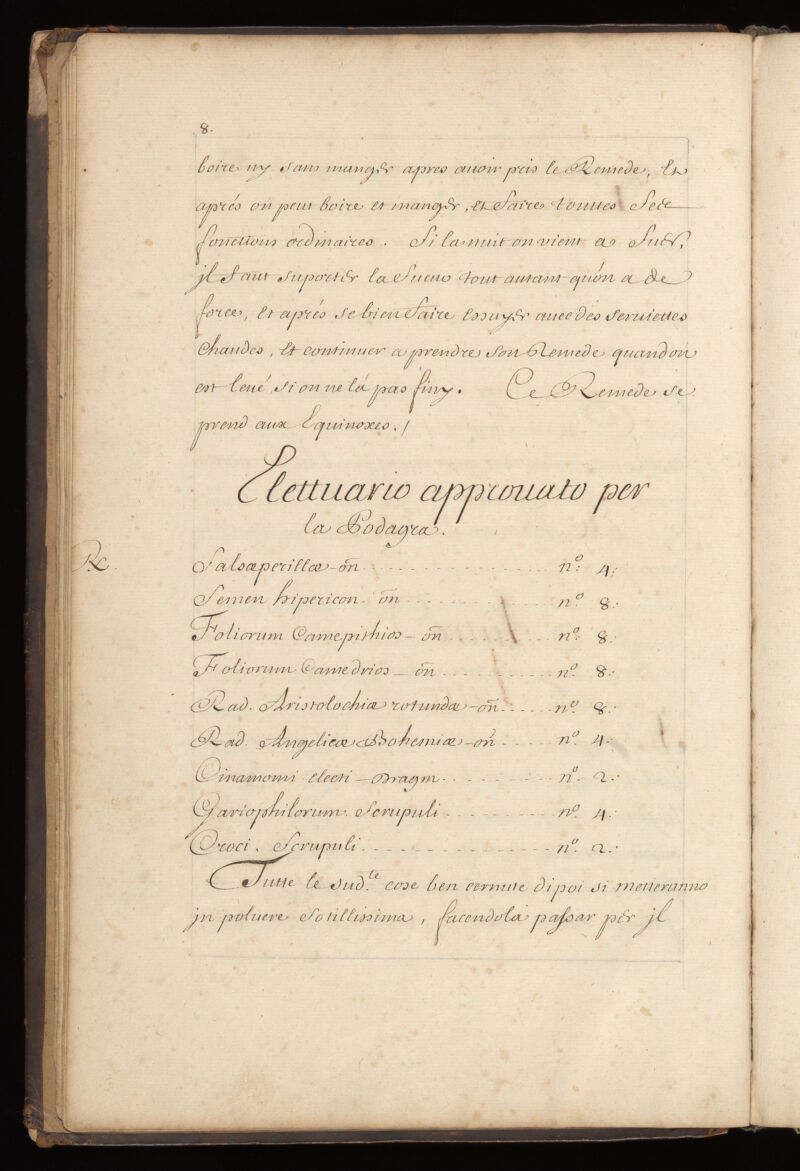 8.
boire ny sans manger apres auoir pris le Remede, Et
aprés on peut boire et manger, et faire touttes Ses
fonctions ordinaires. Si la nuit on vient a Suer,
jl faut suporter la Sueur tout autant qu'on a de
force, Et aprés se bien faire Essuyer auec des seruiettes
Chaudes, Et continuer a prendre son Remede quand on
est leué, si on ne lá pas finy. Ce Remede se
prend aux Equinoxes. /
Elettuario approuato per
la Podagra.
Rc.
Salsaperillæ - on̄ ............ nº: 4:
Semen hipericon - on̄ ............ nº 8:
Foliorum Camepithios - on̄ ............ nº. 8:
Foliorum Camedrios - on̄ ............ nº. 8:
Rad. Aristolochiæ rotundæ - on̄ ...... nº. 8:
Rad. Angelicæ Bohemiæ - on̄ ...... nº. 4:
Cinamomi electi - Dragm ............ nº. 2:
Gariophilorum. Scrupuli ............ nº. 4:
Croci. Scrupuli ............ nº. 2:
Tutte le sud.te cose ben cernute dipoi si metteranno
jn poluere Sotillissima, facendola passar per jl